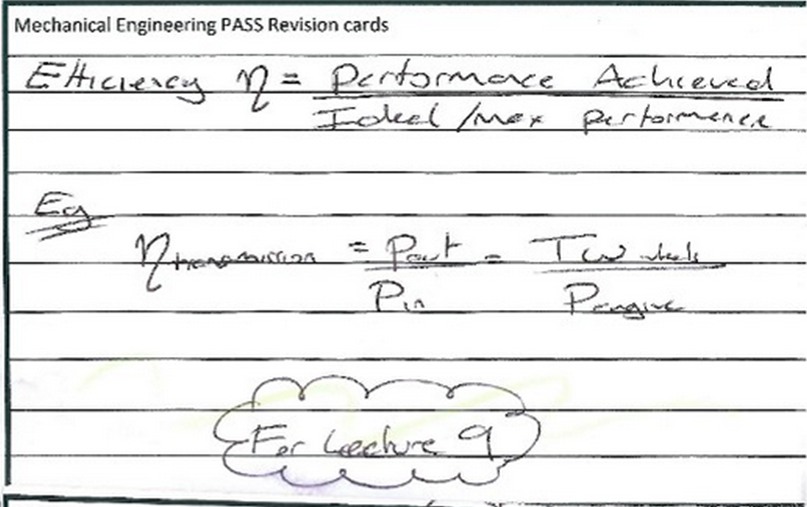 Mechanical Engineering PASS Revision cards
Efficiency η = Performance Achieved
Ideal /Max performance
Eg
ηtransmission = Pout = Tω wheels
Pin Pengine
For Lecture 9